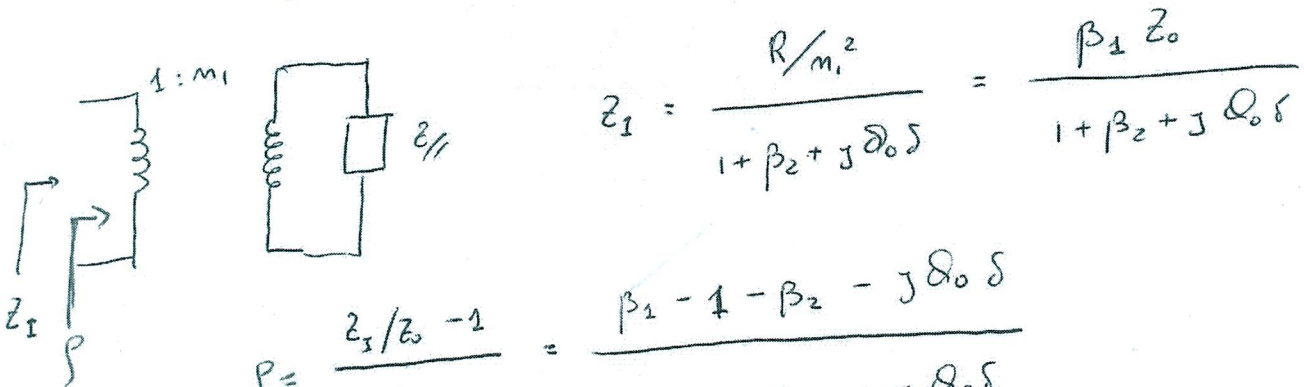 1 : n₁
Z//
Z_I
ρ
Z_I = (R/n₁²) / (1 + β₂ + j Q₀ δ) = (β₁ Z₀) / (1 + β₂ + j Q₀ δ)
ρ = (Z_I/Z₀ - 1) / = (β₁ - 1 - β₂ - j Q₀ δ) / Q₀ δ